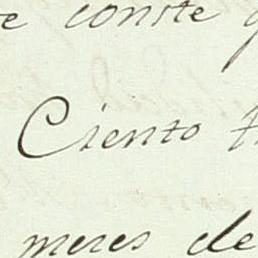 e conste q
Ciento t
meses de